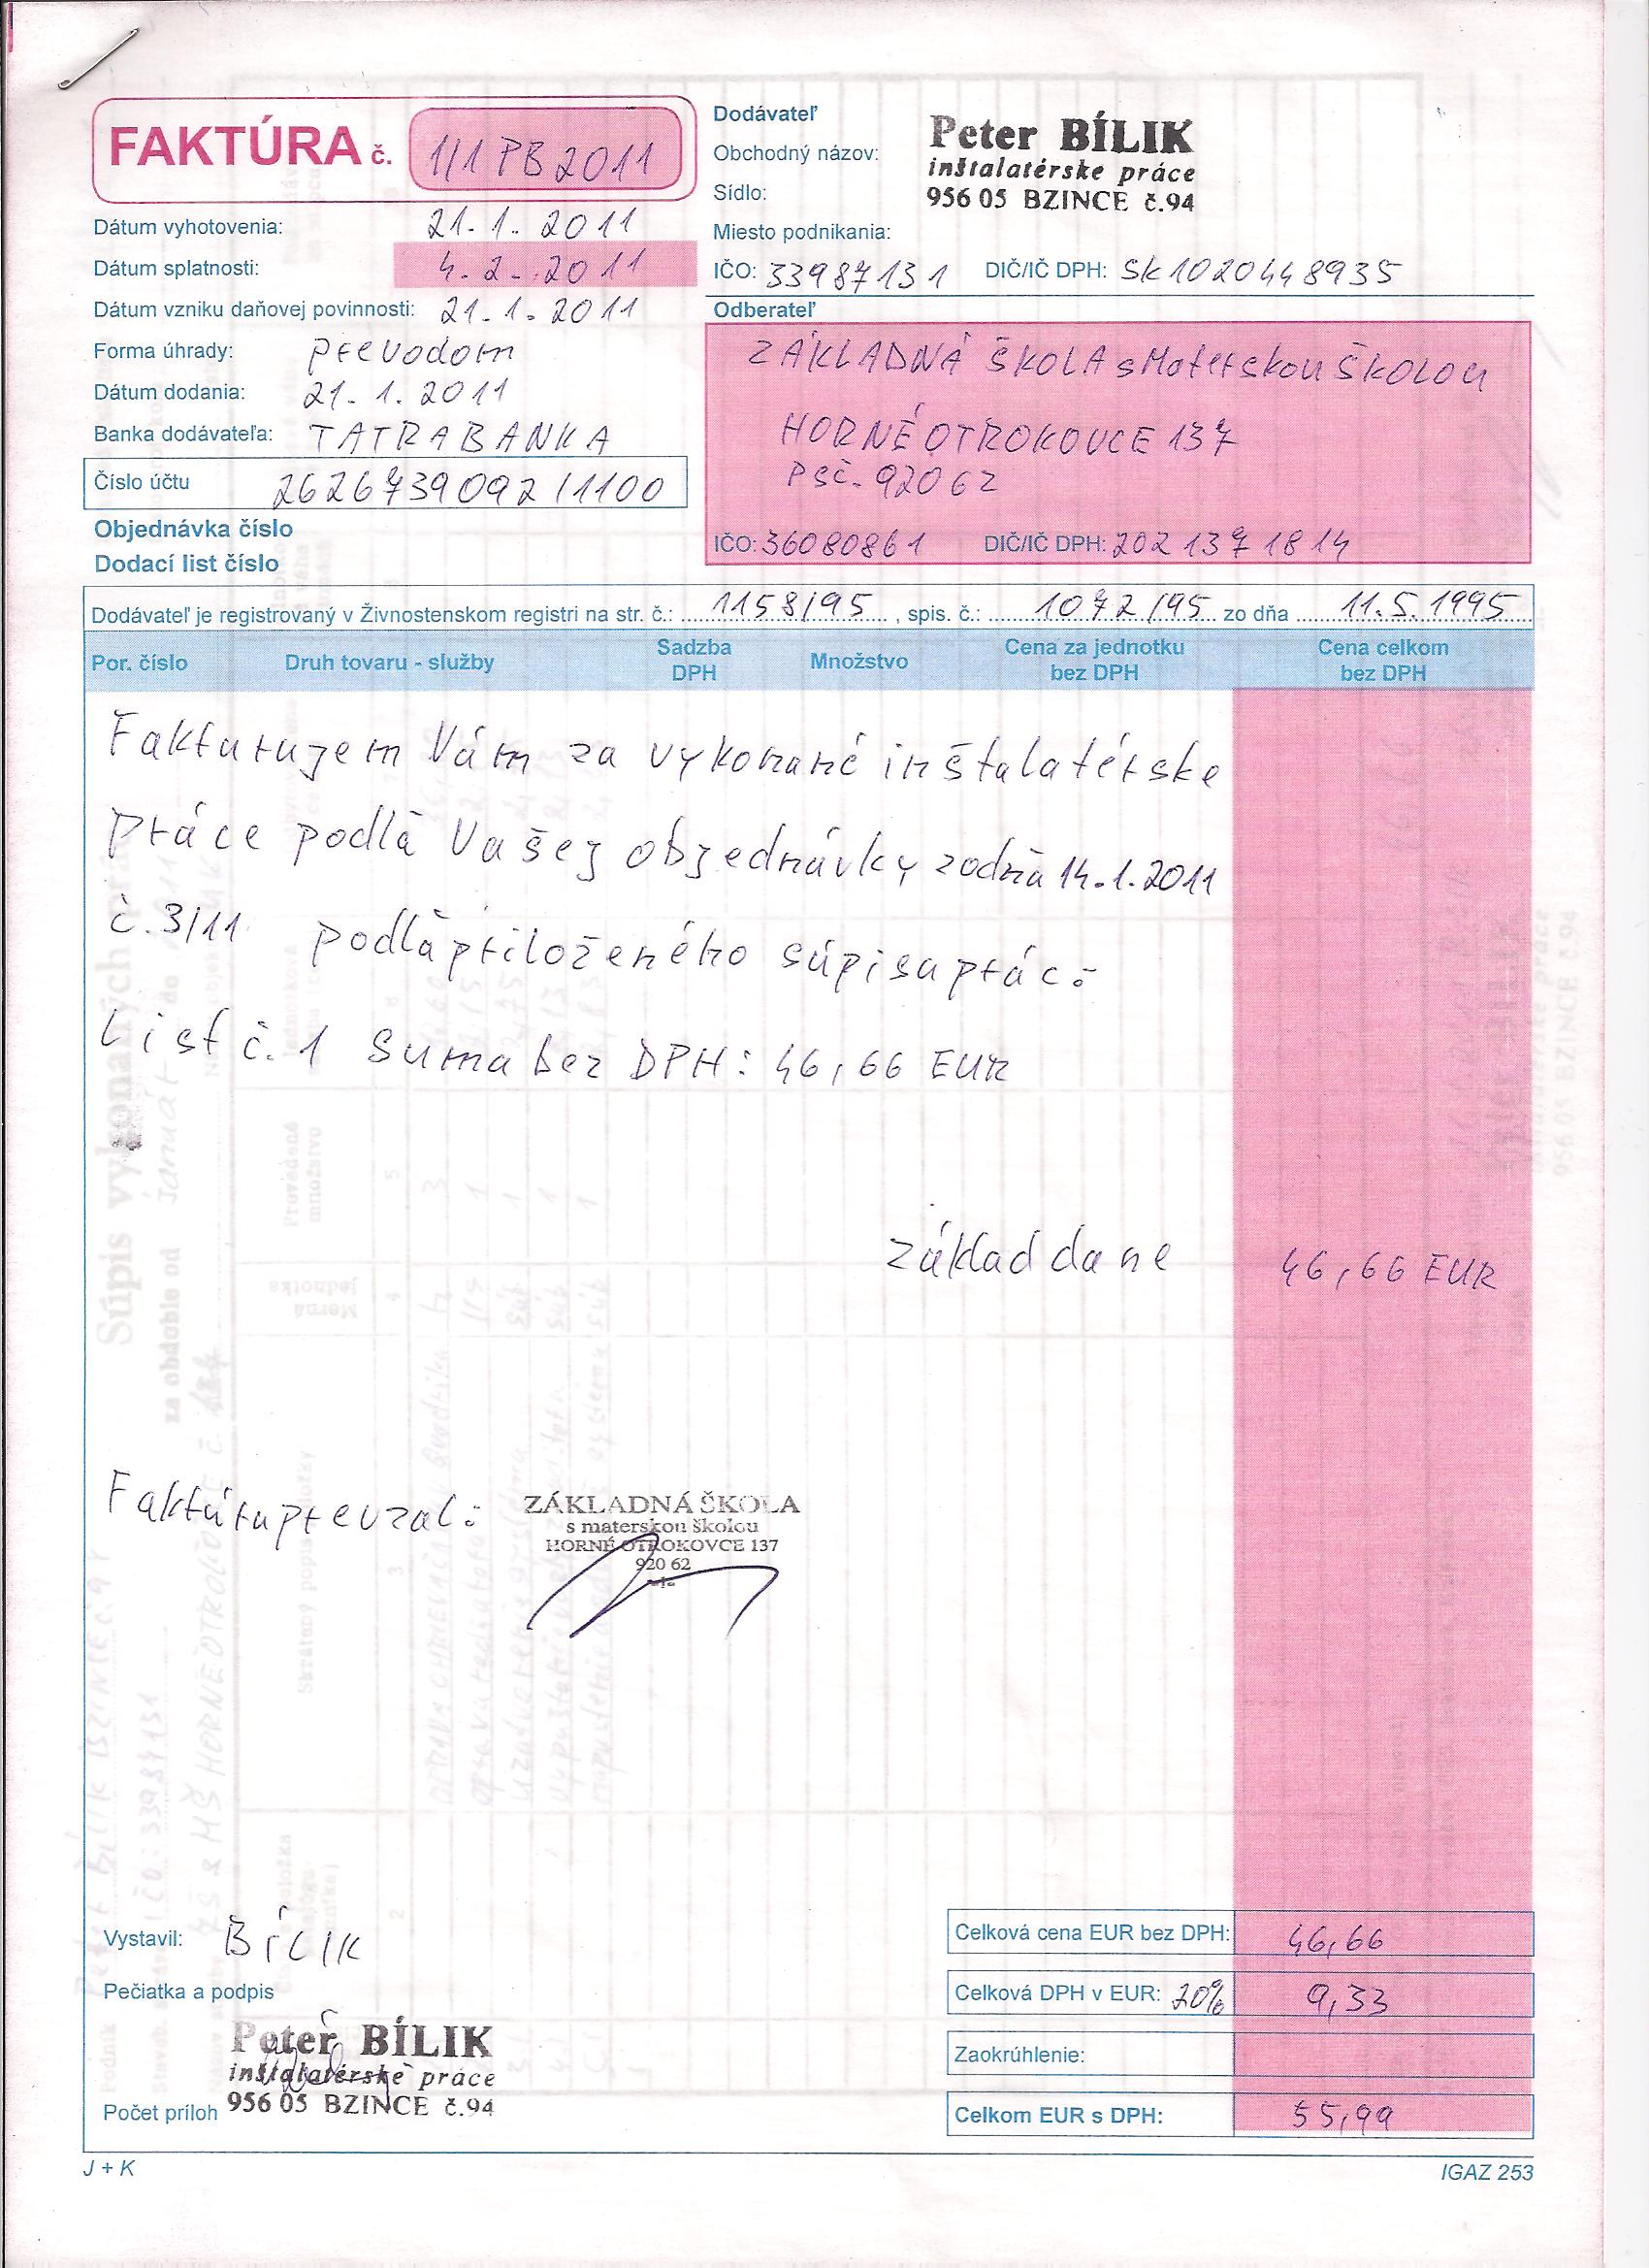 FAKTÚRA č. 1/1 PB 2011
Dátum vyhotovenia: 21.1. 2011
Dátum splatnosti: 4.2. 2011
Dátum vzniku daňovej povinnosti: 21.1.2011
Forma úhrady: prevodom
Dátum dodania: 21.1.2011
Banka dodávateľa: TATRABANKA
Číslo účtu 2626739092/1100
Objednávka číslo
Dodací list číslo
Dodávateľ
Obchodný názov:
Sídlo:
Peter BÍLIK
inštalatérske práce
956 05 BZINCE č.94
Miesto podnikania:
IČO: 33987131 DIČ/IČ DPH: SK1020448935
Odberateľ
ZÁKLADNÁ ŠKOLA s Materskou ŠKOLOU
HORNÉ OTROKOVCE 137
PSČ. 92062
IČO: 36080861 DIČ/IČ DPH: 2021371814
Dodávateľ je registrovaný v Živnostenskom registri na str. č.: 1158/95, spis. č.: 1072/95 zo dňa 11.5.1995
Por. číslo Druh tovaru - služby Sadzba DPH Množstvo Cena za jednotku bez DPH Cena celkom bez DPH
Fakturujem Vám za vykonané inštalatérske
práce podlă Vašej objednávky zodňa 14.1.2011
č. 3/11 podlă priloženého súpisu prác:
List č. 1 Suma bez DPH: 46,66 EUR
základ dane 46,66 EUR
Faktúru prevzal:
ZÁKLADNÁ ŠKOLA
s materskou školou
HORNÉ OTROKOVCE 137
920 62
Vystavil: BÍLIK
Pečiatka a podpis
Peter BÍLIK
inštalatérske práce
956 05 BZINCE č.94
Počet príloh
Celková cena EUR bez DPH: 46,66
Celková DPH v EUR: 20% 9,33
Zaokrúhlenie:
Celkom EUR s DPH: 55,99
J + K
IGAZ 253